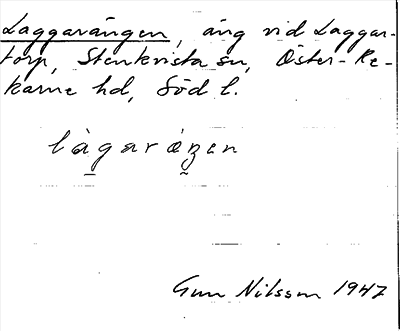 Laggarängen, äng vid Laggar-
torp, Stenkvista sn, Öster-Re-
karne hd, Söd l.
làgaráŋen
Gun Nilsson 1947